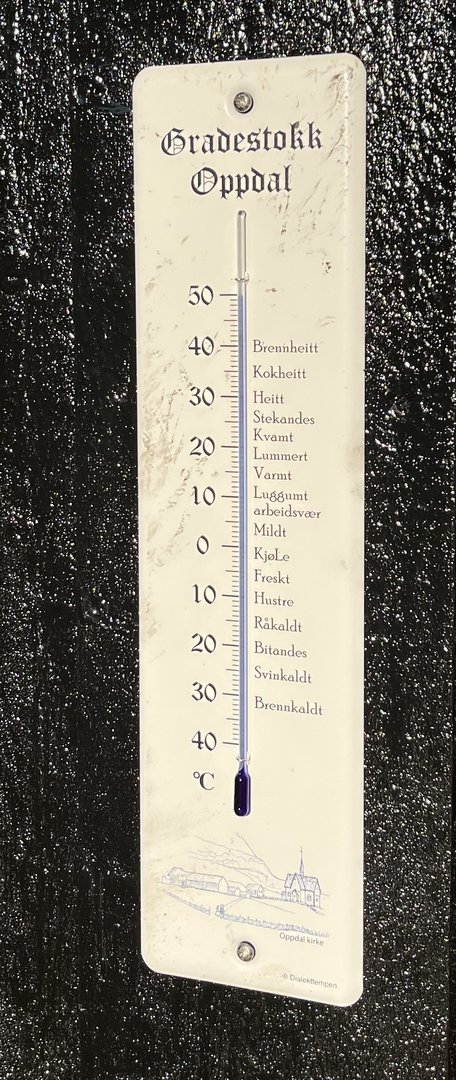 Gradestokk
Oppdal
50
40 Brennheitt
Kokheitt
30 Heitt
Stekandes
Kvamt
20 Lummert
Varmt
10 Luggumt
arbeidsvær
Mildt
0 KjøLe
Freskt
10 Hustre
Råkaldt
20 Bitandes
Svinkaldt
30 Brennkaldt
40
°C
Oppdal kirke
® Dialekttempen